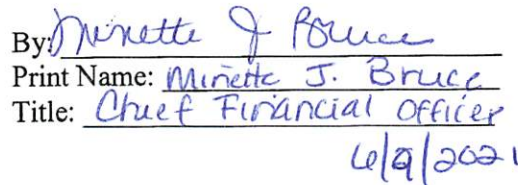 By: Minette J Bruce
Print Name: Minette J. Bruce
Title: Chief Financial Officer
6/9/2021